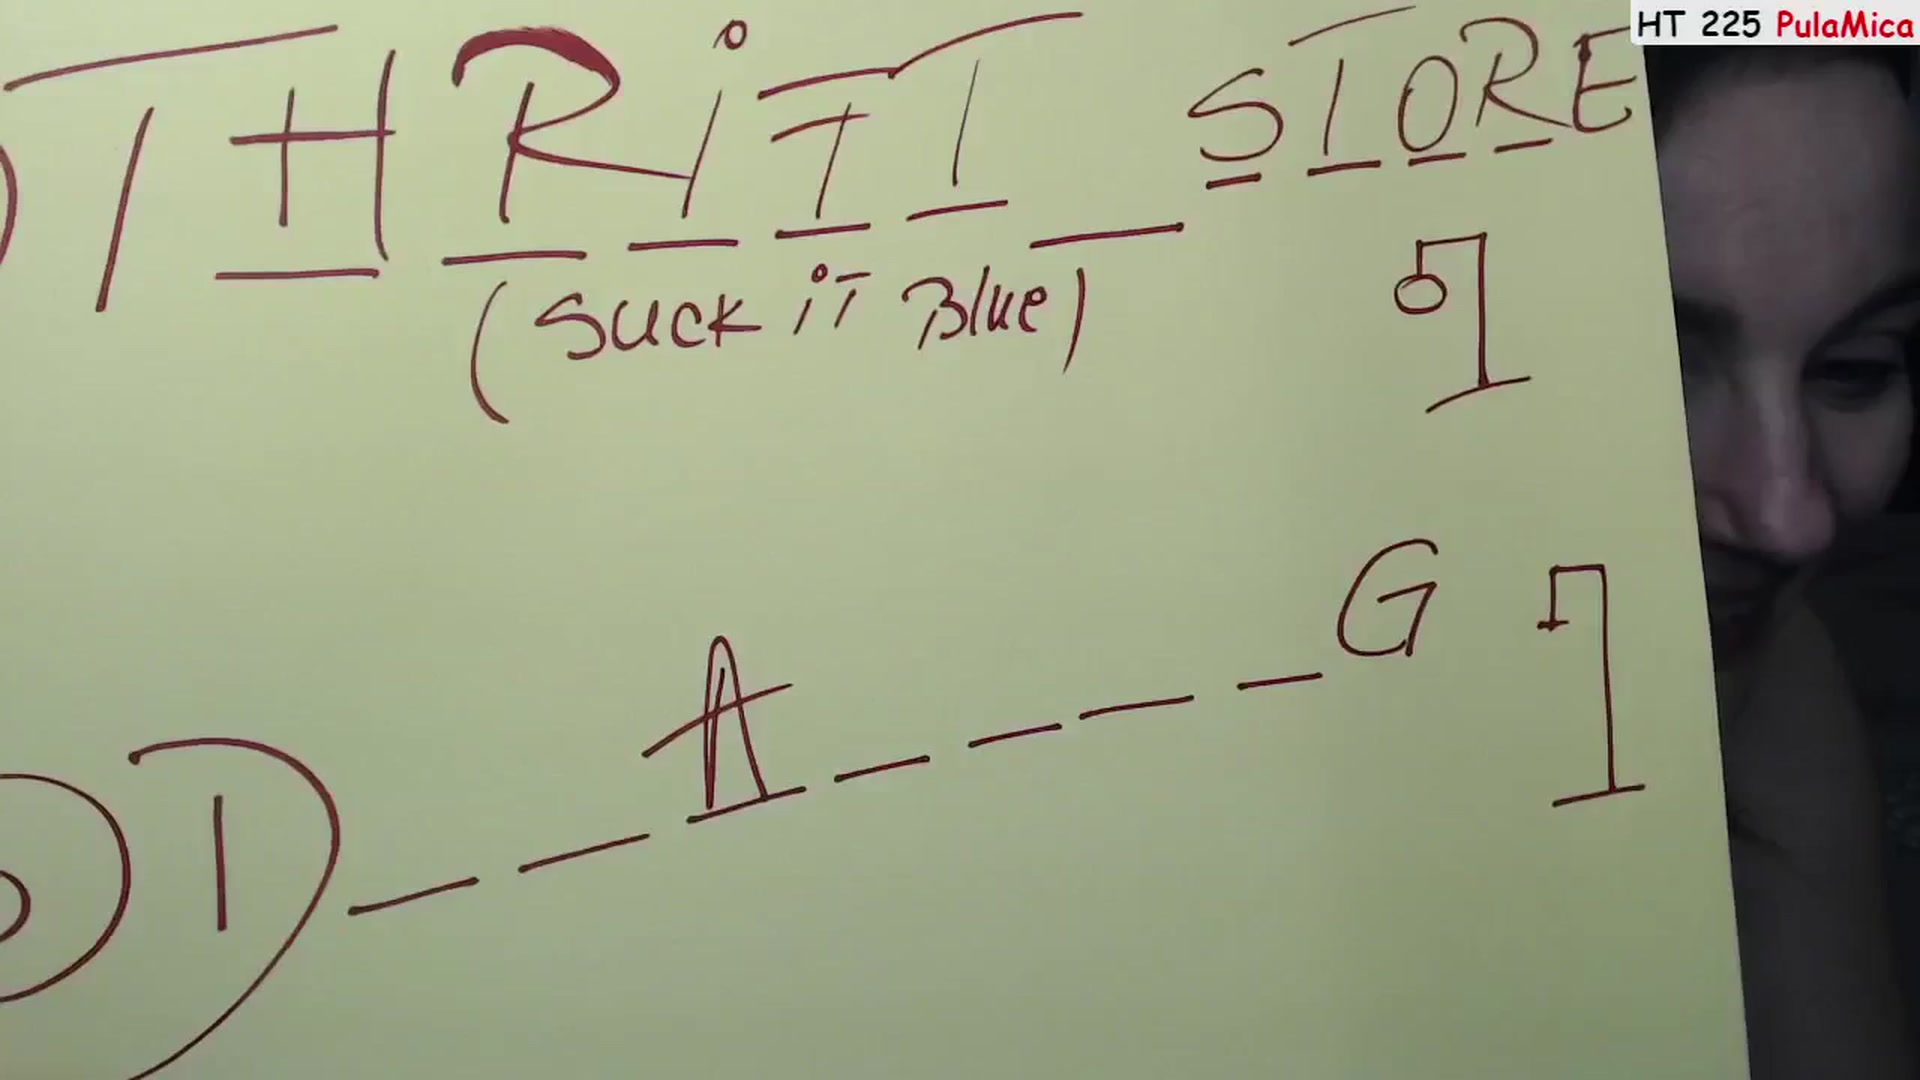 HT 225 PulaMica
THRiFT STORE
(SUCK iT Blue)
A G